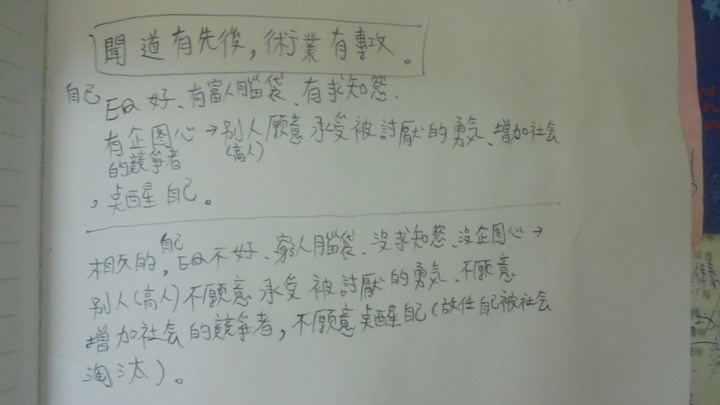 聞道有先後，術業有專攻。
自己 EQ好、有富人腦袋、有求知慾、
有企图心→別人願意承受被討厭的勇気、增加社会
的競爭者 (高人)
，桌醒自己。
相反的，自己EQ不好、窮人腦袋、沒求知慾、沒企图心→
別人(高人)不願意承受被討厭的勇気、不願意
增加社会的競爭者，不願意桌醒自己(放任自己被社会
淘汰)。